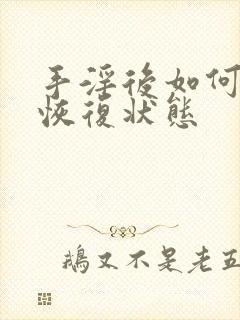 手淫後如何
恢復狀態
鵝又不是老五